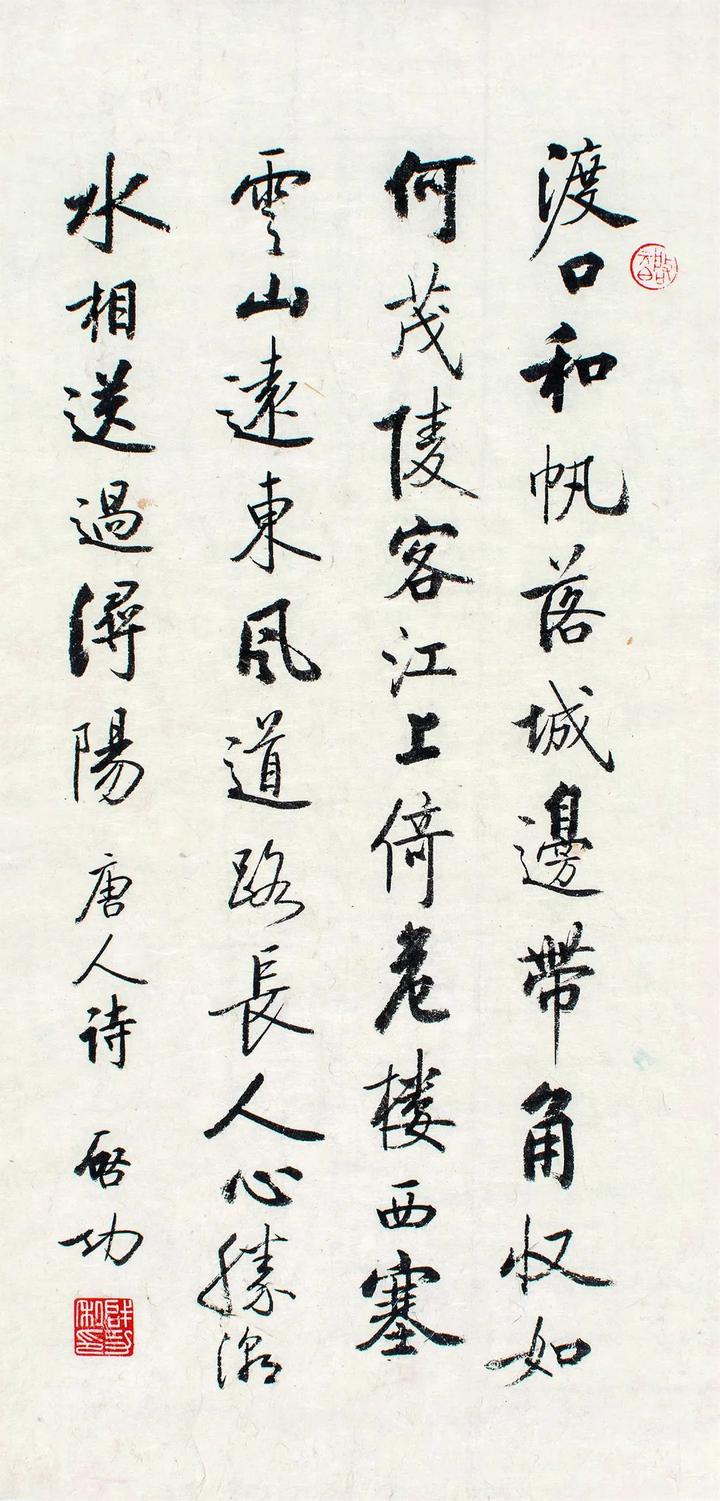 渡口和帆落城邊帶角收如
何茂陵客江上倚危樓西塞
雲山遠東風道路長人心勝潮
水相送過潯陽 唐人诗 启功